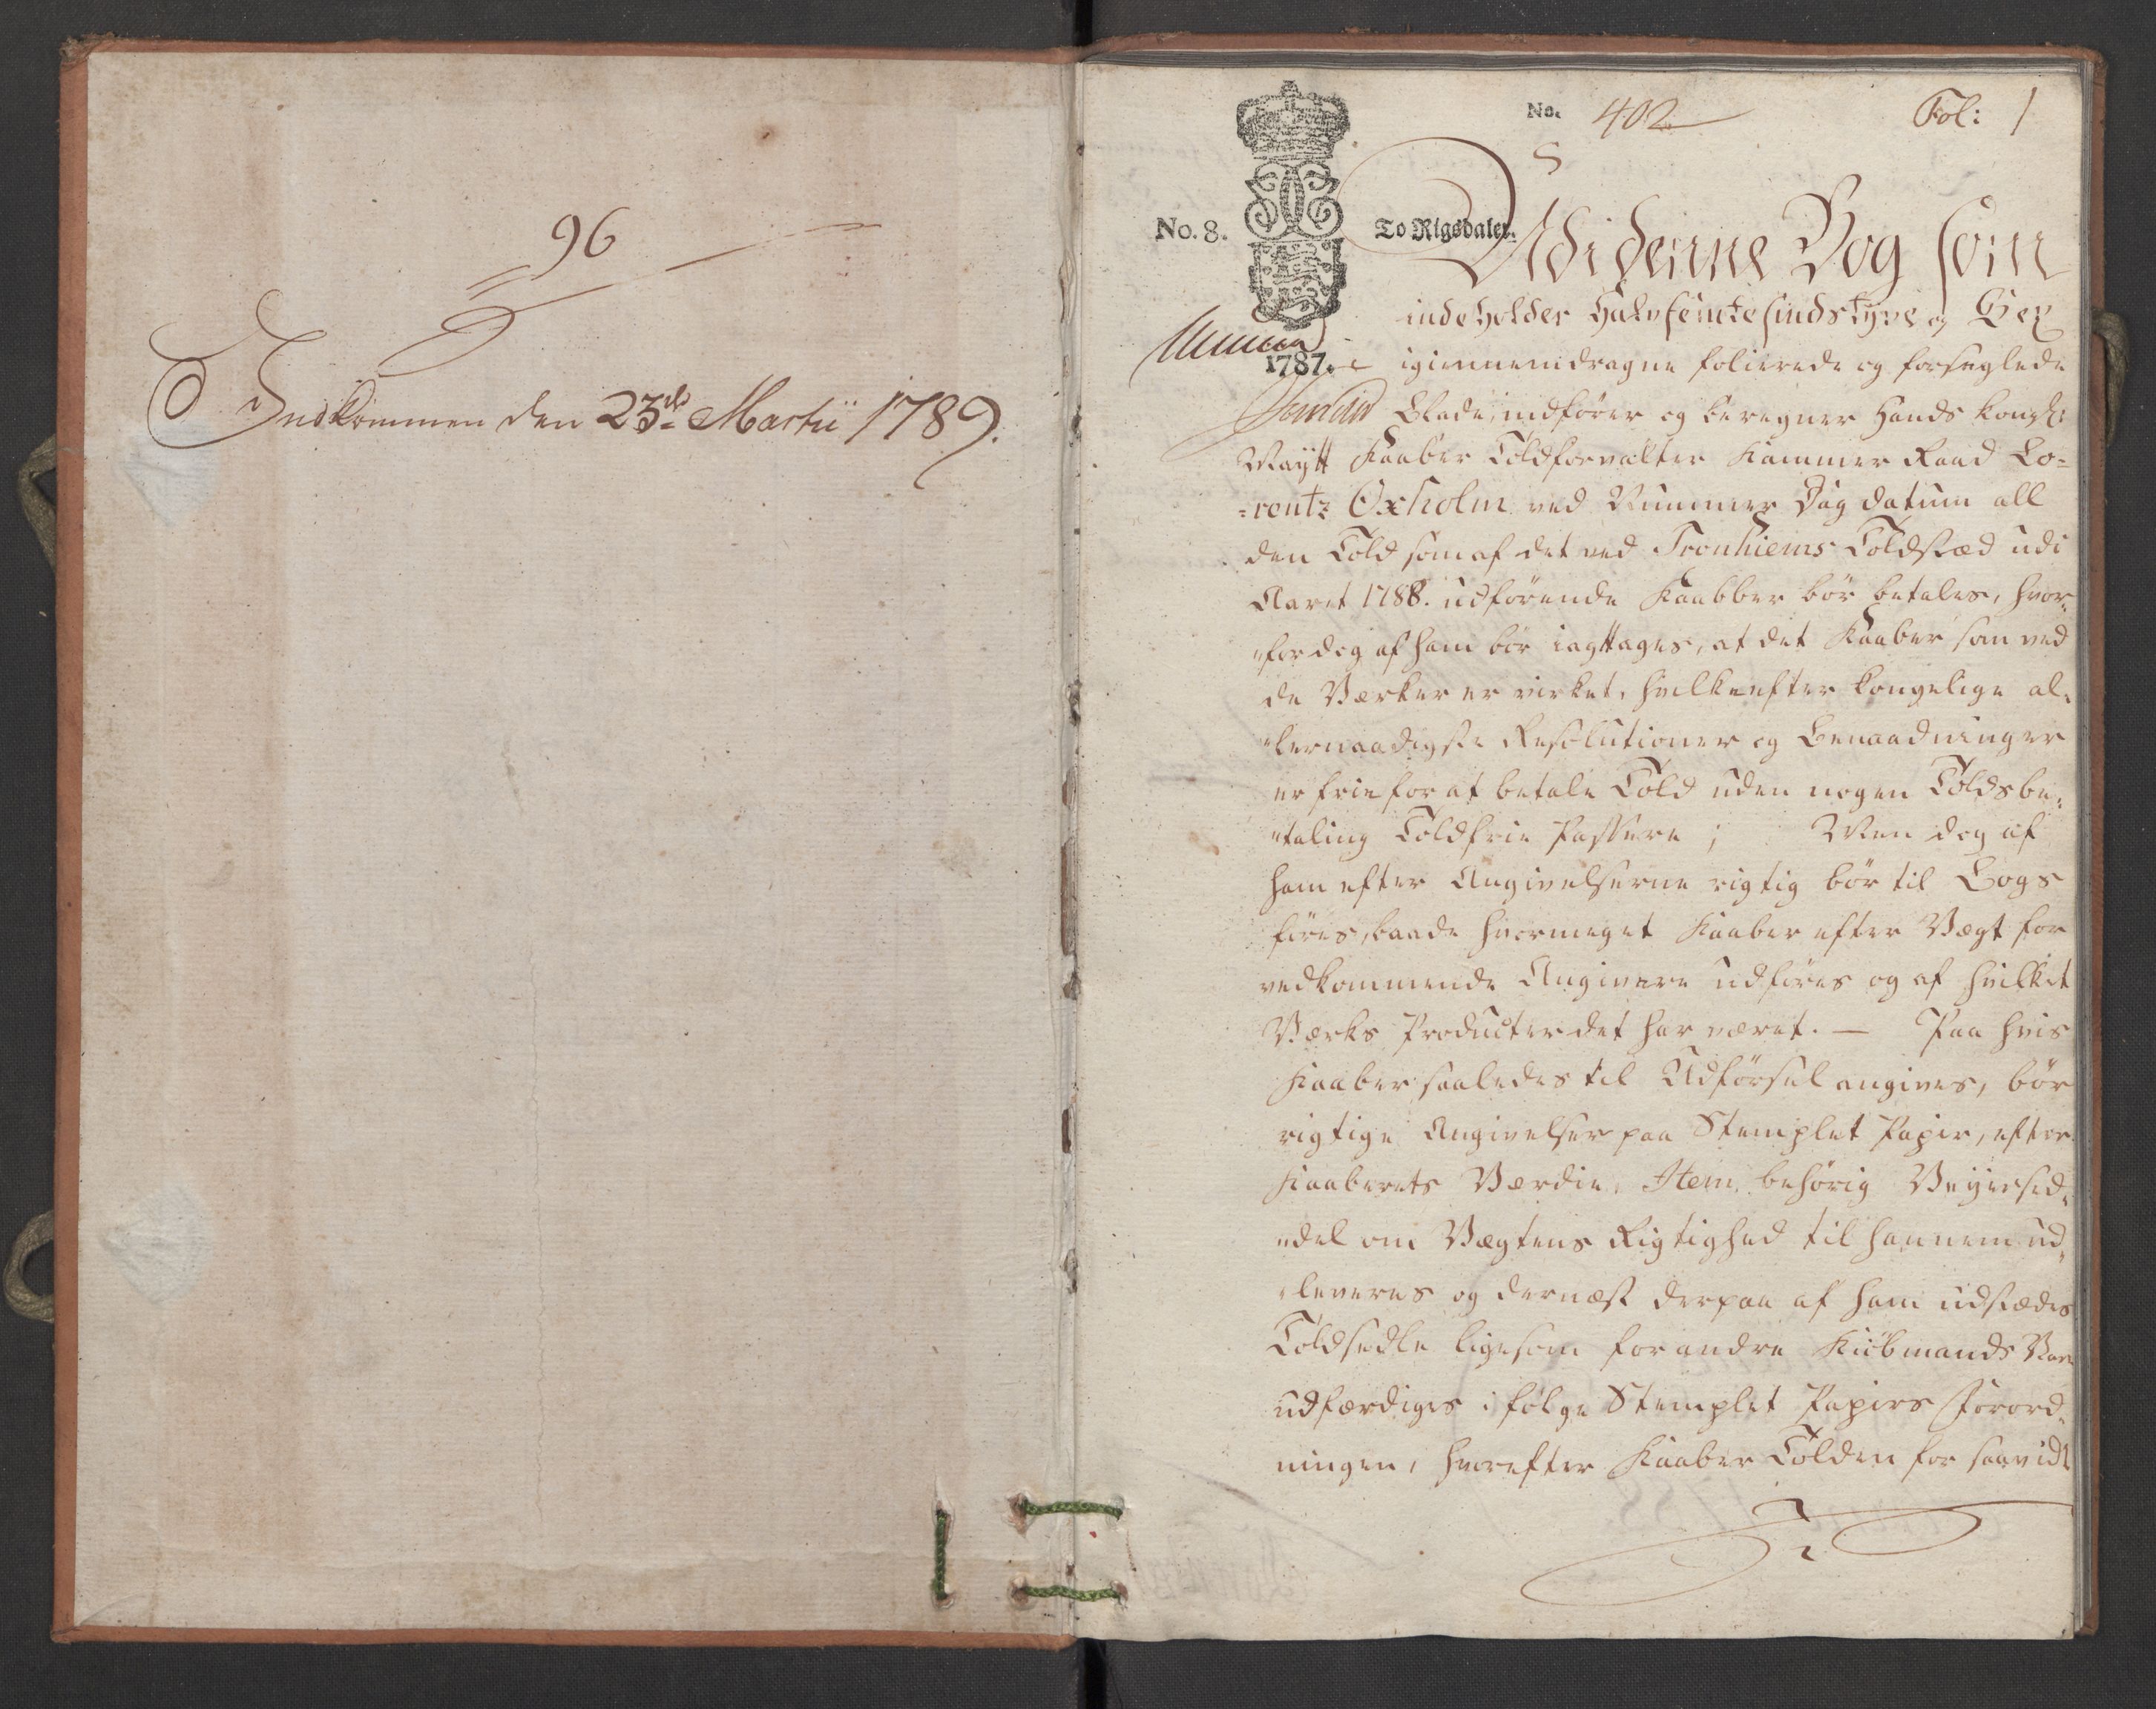 96
Indkommen den 23de Martii 1789.
No. 402
Fol: 1
No. 8.
To Rigsdaler.
1787.
Udi denne Bog som
indeholder Halvfemtesindstyve og Sex
igiennemdragne folierede og forseglede
Blade, indfører og beregner Hands Kongl:
Maytt Kaaber Toldforvalter Kammer Raad Lo=
=rentz Oxholm ved Nummer Dag datum all
den Told som af det ved Tronhiems Toldstæd udi
Aaret 1788. udførende Kaabber bør betales, hvor„
„for dog af ham bør iagttages, at det Kaaber som ved
de Værker er virket, hvilke efter Kongelige al„
„lernaadigste Resolutioner og Benaadninger
er frie for at betale Told uden nogen Toldsbe„
„taling Toldfrie passere; Men dog af
ham efter Angivelserne rigtig bør til Bogs
føres, baade hvormeget Kaaber efter Vægt for
vedkommende Angivere udføres og af hvilket
Værks Producter det har været. — Paa hvis
Kaaber saaledes til Udførsel angives, bør
rigtige Angivelser paa Stemplet Papir, efter
Kaaberets Værdie, Item behørig Veyersed„
„del om Vægtens Rigtighed til hannem ud„
„leveres og dernæst derpaa af ham udstædes
Toldsedle ligesom for andre Kiøbmands Vare
udfærdiges i følge Stemplet Papiirs Forord„
ningen, hvorefter Kaaber Tolden for saavidt